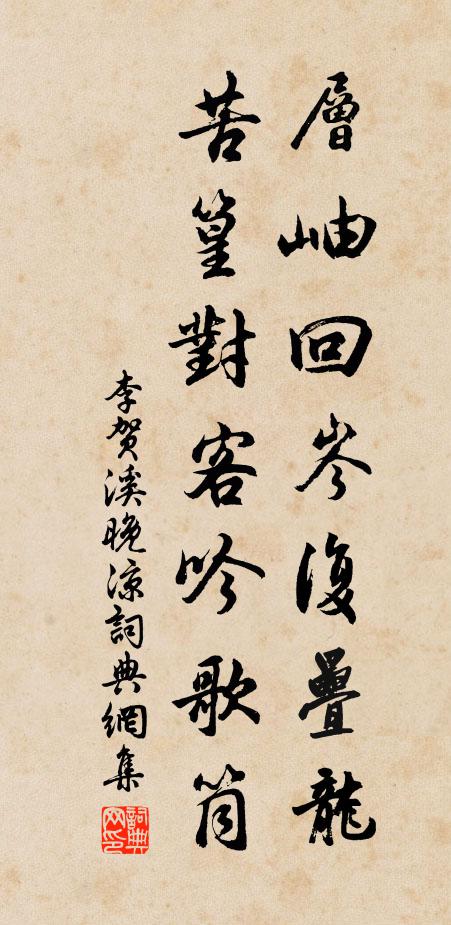 層岫回岑復疊龍
苦篁對客吟歌筒
李賀溪晚涼詞典網集
詞典
网印